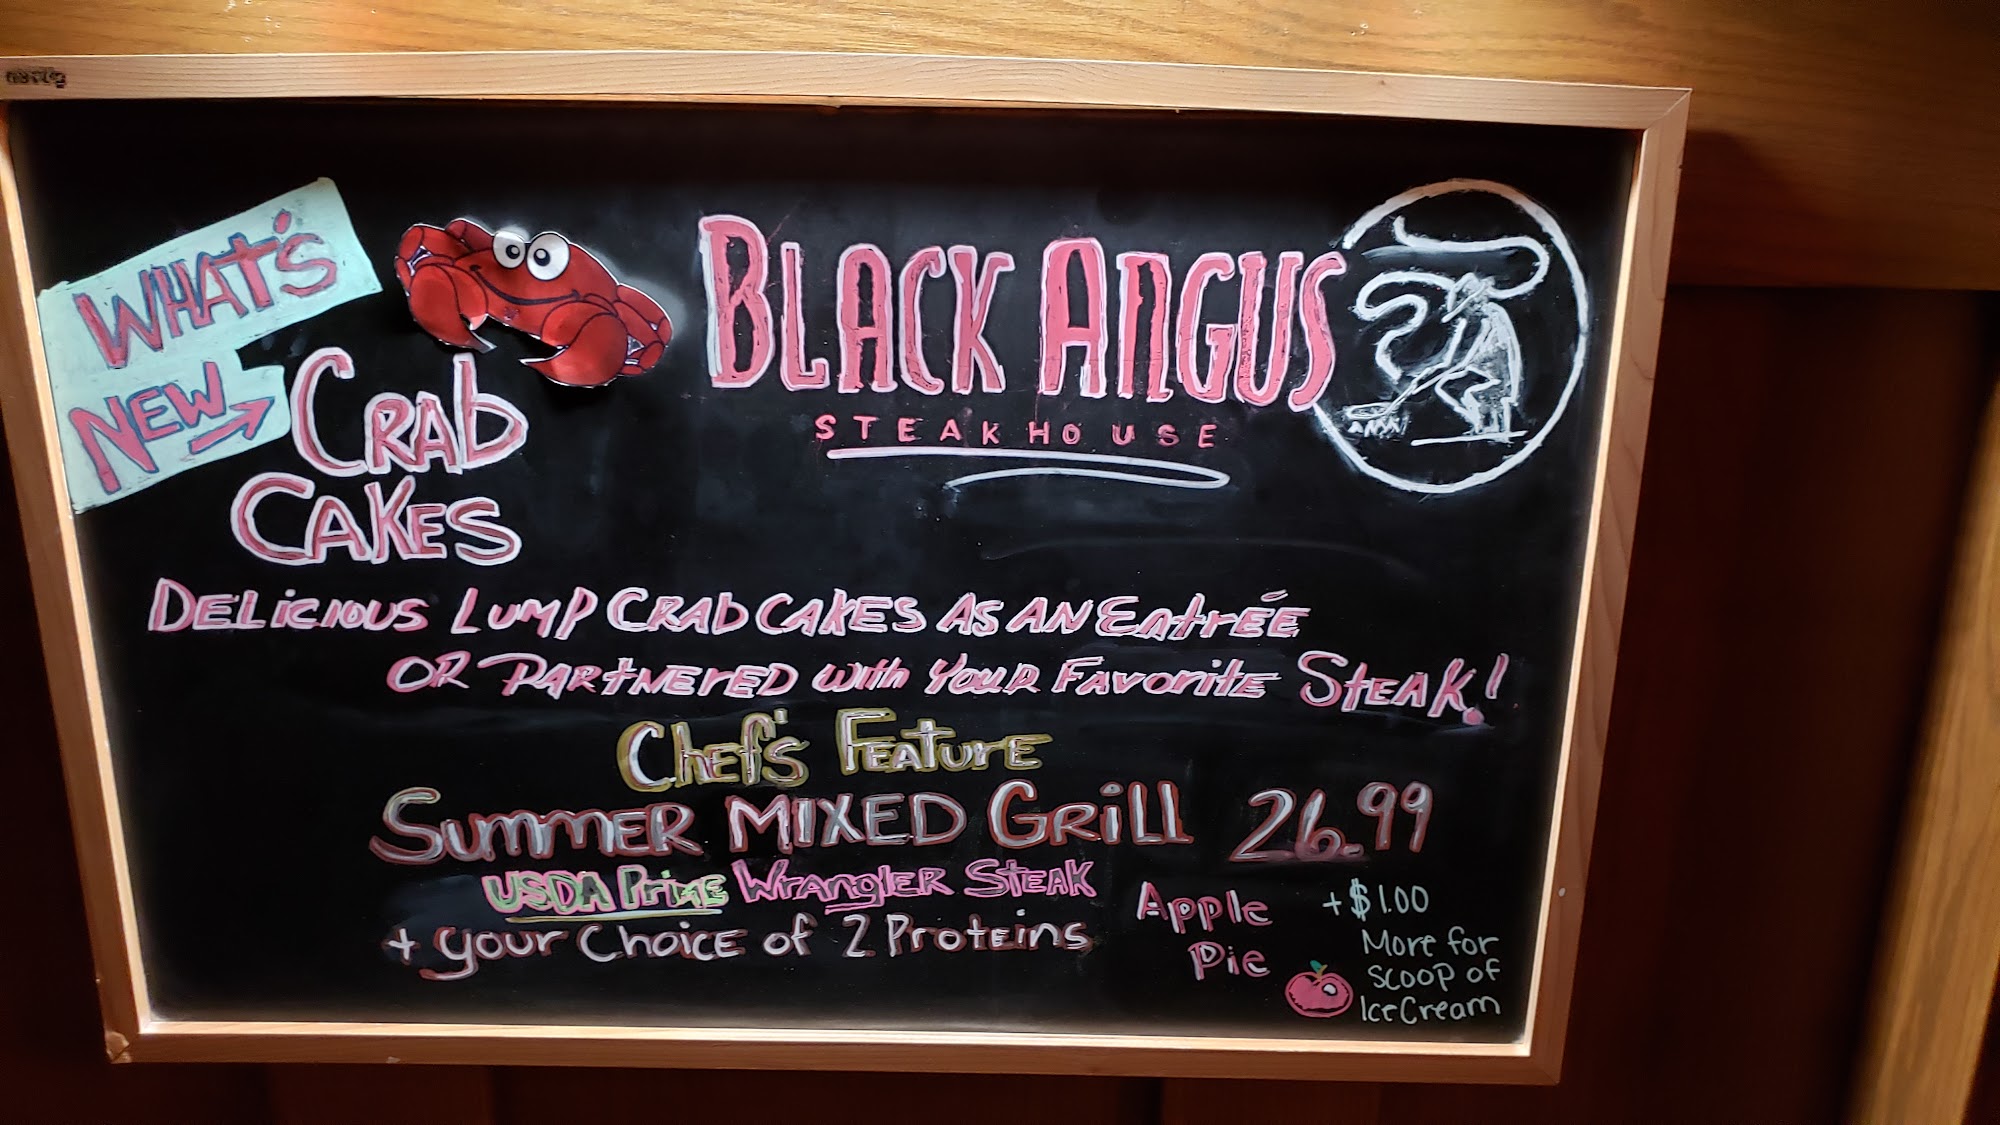 WHAT'S
NEW
CRAB
CAKES
BLACK ANGUS
STEAKHOUSE
DELICIOUS LUMP CRAB CAKES AS AN ENTRÉE
OR PARTNERED WITH YOUR FAVORITE STEAK!
CHEF'S FEATURE
SUMMER MIXED GRILL 26.99
USDA PRIME WRANGLER STEAK
+ YOUR CHOICE OF 2 PROTEINS
Apple
Pie
+ $1.00
More for
scoop of
Ice Cream